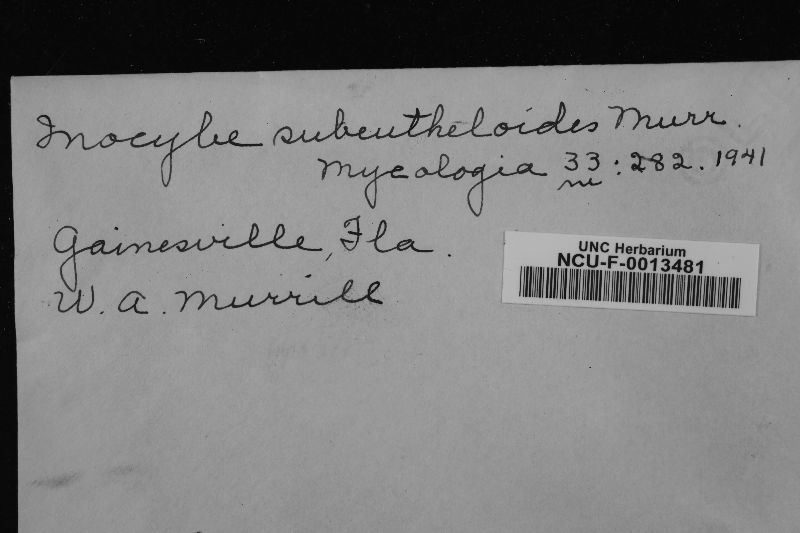 Inocybe subeutheloides Murr.
Mycologia 33 : 282. 1941
Gainesville, Fla.
W. A. Murrill
UNC Herbarium
NCU-F-0013481